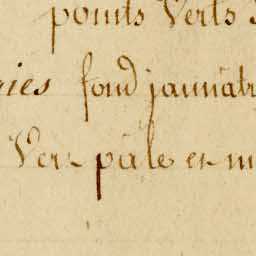 points Verts
fond jaunâtr
Vert pâle et m